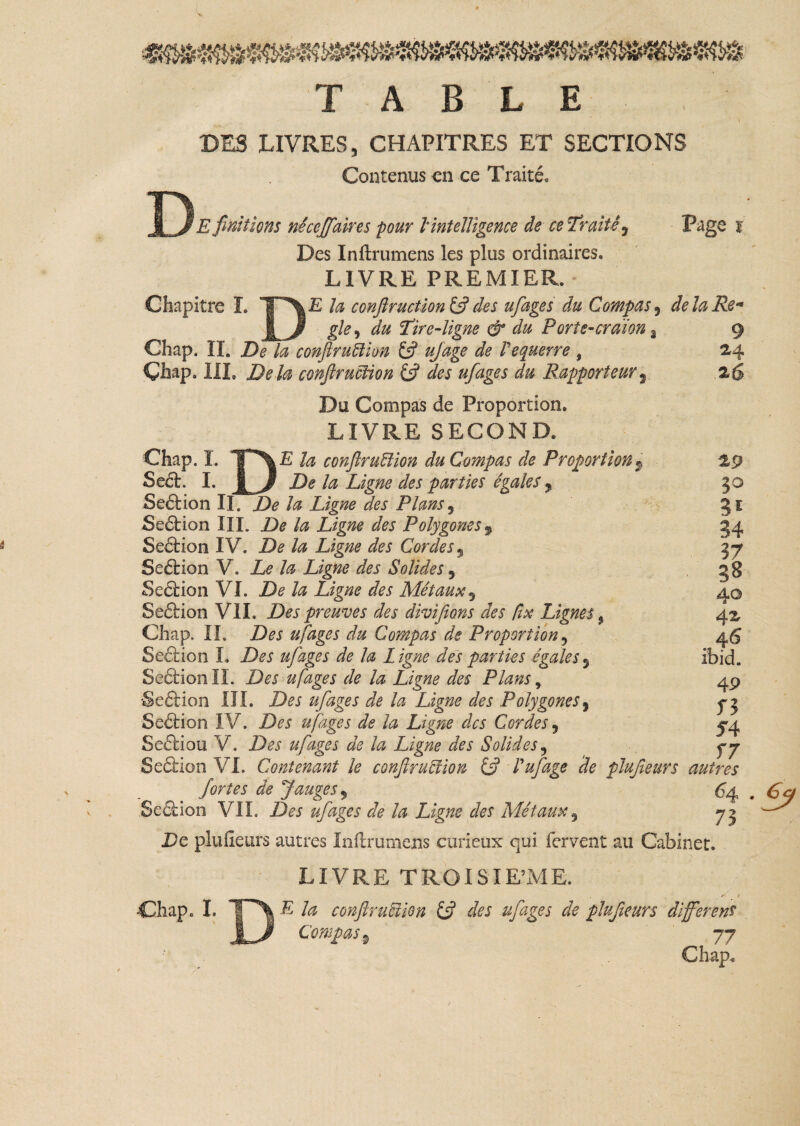 TABLE
DES LIVRES, CHAPITRES ET SECTIONS
Contenus en ce Traité.
DEfinitions nécessaires pour l'intelligence de ce Traité, Page 1
Des Instrumens les plus ordinaires.
LIVRE PREMIER.
Chapitre I. DE la construction & des usages du Compas, de la Re-
gle, du Tire-ligne & du Porte-craion, 9
Chap. II. De la construction & usage de l'equerre, 24
Chap. III. De la construction & des usages du Rapporteur, 26
Du Compas de Proportion.
LIVRE SECOND.
Chap. I. DE la construction du Compas de Proportion, 29
Sect. I. De la Ligne des parties égales, 30
Section II. De la Ligne des Plans, 31
Section III. De la Ligne des Polygones, 34
Section IV. De la Ligne des Cordes, 37
Section V. Le la Ligne des Solides, 38
Section VI. De la Ligne des Métaux, 40
Section VII. Des preuves des divisions des six Lignes, 42
Chap. II. Des usages du Compas de Proportion, 46
Section I. Des usages de la Ligne des parties égales, ibid.
Section II. Des usages de la Ligne des Plans, 49
Section III. Des usages de la Ligne des Polygones, 53
Section IV. Des usages de la Ligne des Cordes, 54
Sectiou V. Des usages de la Ligne des Solides, 57
Section VI. Contenant le construction & l'usage de plusieurs autres
sortes de Jauges, 64 . 69
Section VII. Des usages de la Ligne des Métaux, 73
De plusieurs autres Instrumens curieux qui servent au Cabinet.
LIVRE TROISIE'ME.
Chap. I. DE la construction & des usages de plusieurs differens
Compas, 77
Chap.